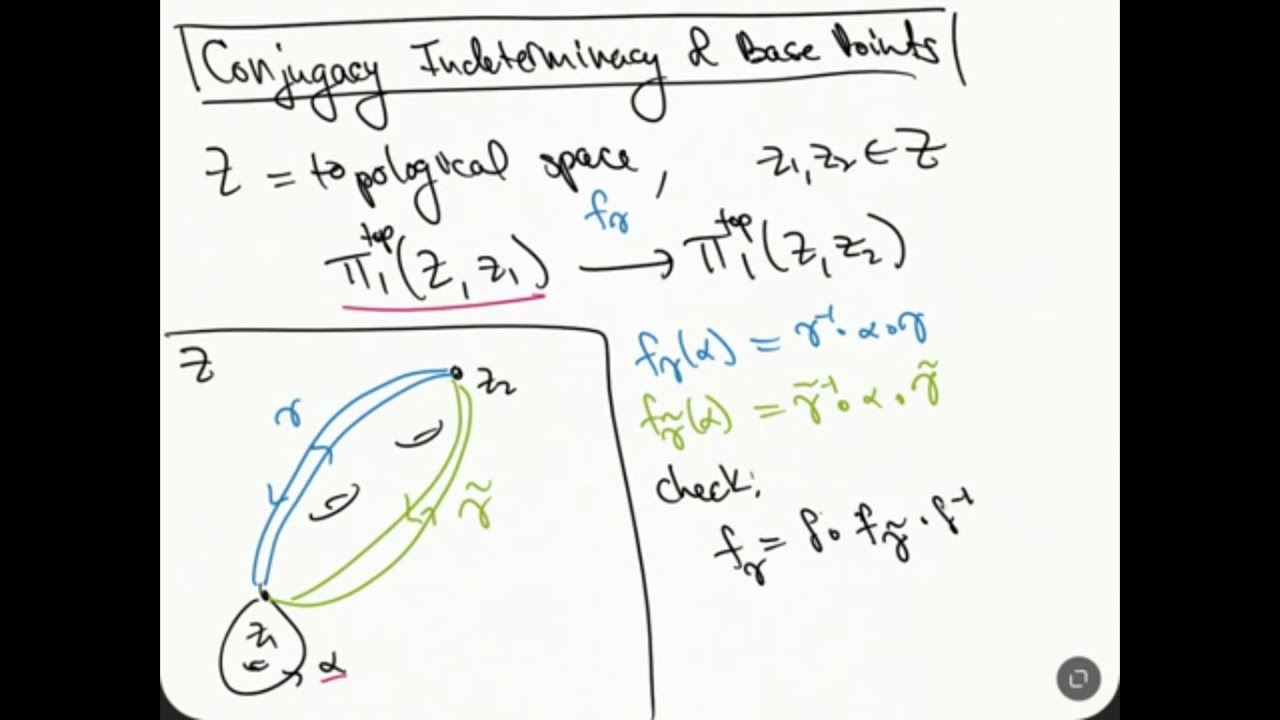 Conjugacy Indeterminacy & Base Points
Z = topological space, z₁, z₂ ∈ Z
π₁ᵗᵒᵖ(Z, z₁) ⟶ π₁ᵗᵒᵖ(Z, z₂)
f_γ
f_γ(α) = γ⁻¹∘α∘γ
f_γ̃(α) = γ̃⁻¹∘α∘γ̃
check:
f_γ = δ∘f_γ̃∘δ⁻¹
Z
z₂
γ
γ̃
z₁
α